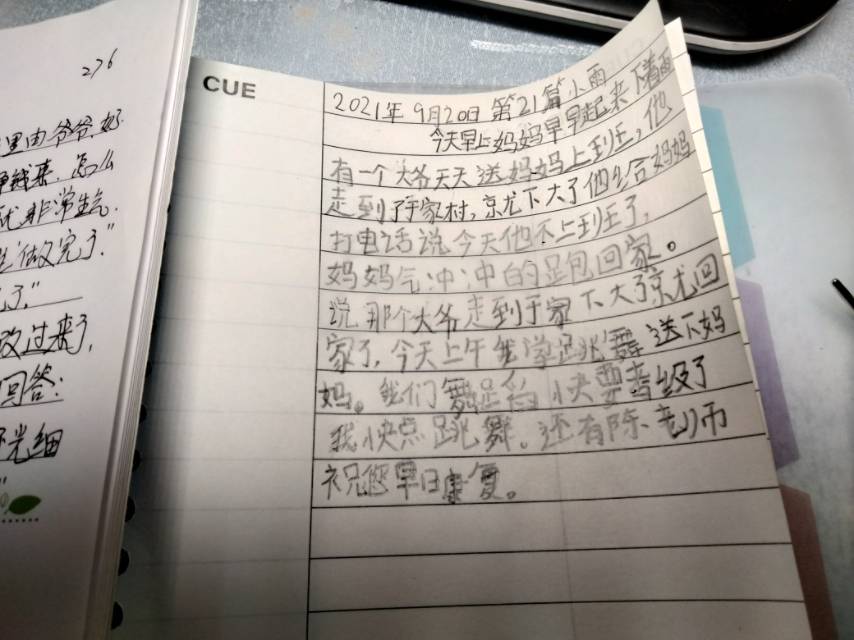 276
里由爷爷好
怎么
非常生气.
做完了."
了."
改过来了,
回答:
光细
CUE
2021年 9月20日 第21篇 小雨
今天早上妈妈早早起来下着雨
有一个大爷天天送妈妈上到王,他
走到了于家村,京尤下大了他至合妈妈
打电话说今天他不上到王了,
妈妈气冲冲白的足包回家。
说那个大爷走到于家下大了京尤回
家了,今天上午我学跳舞送下妈
妈。我们舞蹈快要考级了
我快点跳舞。还有陈老师
祝您早日康复。